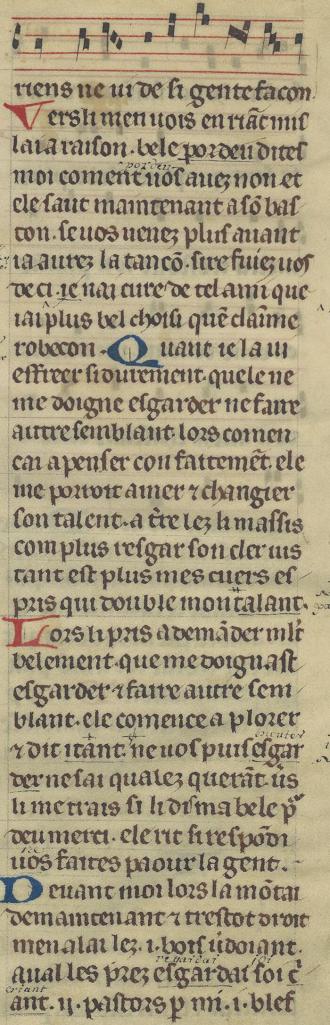 riens ne ui de si gente facon
Vers li men uois en riãt mis
la i a raison. bele por deu dites
por deu
moi coment uos auez non. et
ele saut maintenant a sõ bas
ton. se uos uenez plus auant
ia aurez la tancõ. sire fuiez uos
de ci. ie nai cure de tel ami que
iai plus bel choisi quẽ claime
robecon. Quant ie la ui
effreer si durement. quele ne
me doigne esgarder ne faire
autre semblant. lors comen
cai a penser con faitemẽt. ele
me porroit amer ⁊ changier
son talent. a t̃re lez li massis
com plus resgar son cler uis
tant est plus mes cuers es
pris qui double mon talant.
Lors li pris a demãder ml̃t
belement. que me doignast
esgarder ⁊ faire autre sem
blant. ele comence a plorer
⁊ dit itant. ne uos puis esgar
der ne sai qualez querãt. ũs
li me trais si li dis ma bele p̃
deu merci. ele rit si respõdi
uos faites paour la gent.
Deuant moi lors la mõtai
de maintenant ⁊ trestot droit
men alai lez .i. bois ũdoiant.
aual les prez esgardai soi c̃
regardai
criant
ant .ij. pastors p mi .i. blef